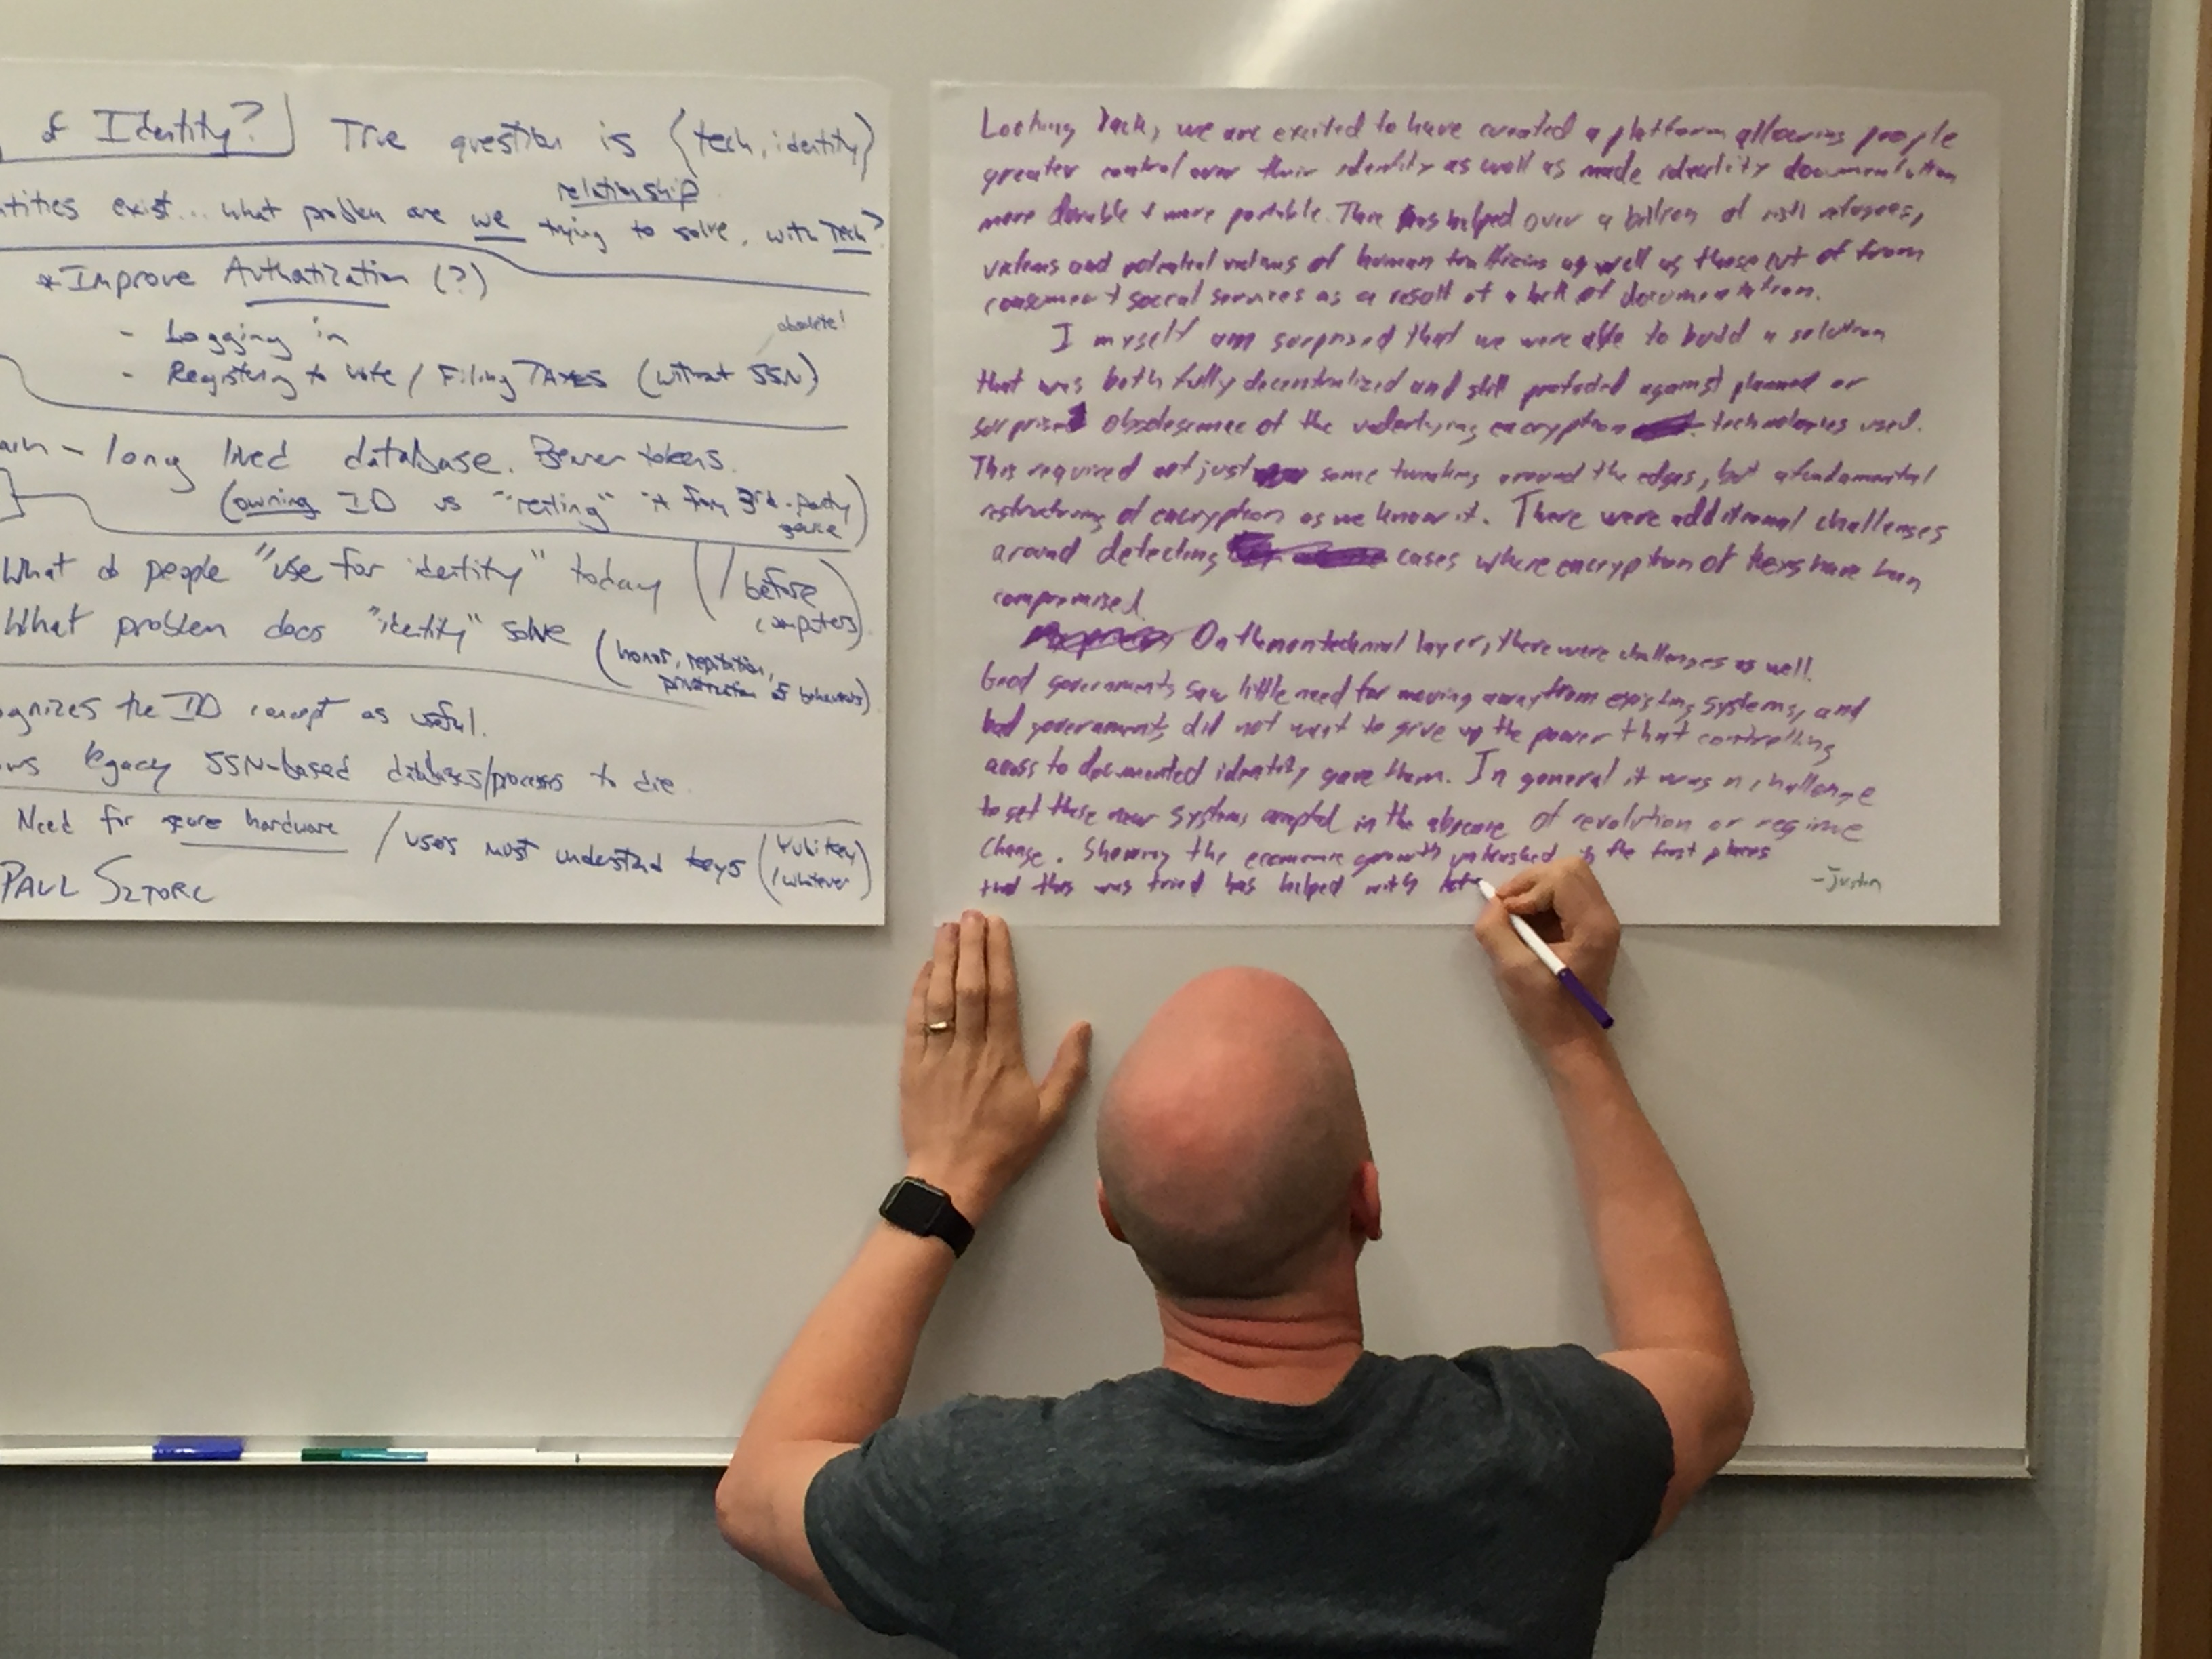 of Identity? True question is (tech, identity)
relationship
tities exist... what problem are we trying to solve, with Tech?
*Improve Authatization (?)
- Logging in
obsolete!
- Registering to vote / Filing TAXES (without SSN)
- long lived database. Bearer tokens.
(owning ID vs "renting" it from 3rd-party
What do people "use for identity" today (/before
computers)
What problem does "identity" solve (honor, reputation,
of behaviors)
ognizes the ID concept as useful.
ws legacy SSN-based databases/processes to die
Need for secure hardware / users must understand keys (Yubikey
/whatever)
PAUL SZTORC
Looking back, we are excited to have created a platform allowing people
greater control over their identity as well as made identity documentation
more durable & more portable. This has helped over a billion of refugees,
victims and potential victims of human trafficing as well as those cut of from
consumer & social services as a result of a lack of documentation.
I myself am surprised that we were able to build a solution
that was both fully decentralized and still protected against planned or
surprise obsolescence of the underlying encryption technologies used.
This required not just some tweaking around the edges, but a fundamental
restructuring of encryption as we know it. There were additional challenges
around detecting cases where encryption of keys have been
compromised.
On the nontechnical layer, there were challenges as well.
Good governments saw little need for moving away from existing systems, and
bad governments did not want to give up the power that controlling
access to documented identity gave them. In general it was a challenge
to get these new systems accepted in the absence of revolution or regime
change. Showing the economic growth unleashed in the first places
that this was tried has helped with
-Justin